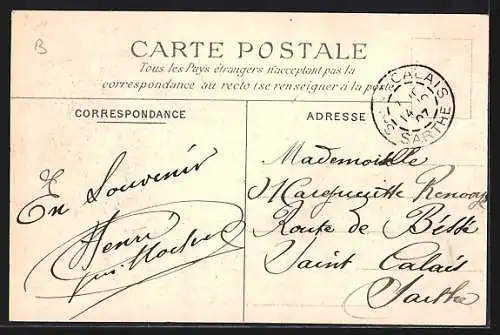 B
CARTE POSTALE
Tous les Pays étrangers n'acceptent pas la
correspondance au recto (se renseigner à la poste)
ST CALAIS
14
07
SARTHE
CORRESPONDANCE
ADRESSE
En Souvenir
Henri
Mademoiselle
Marguerite
Route de Bessé
Saint Calais
Sarthe